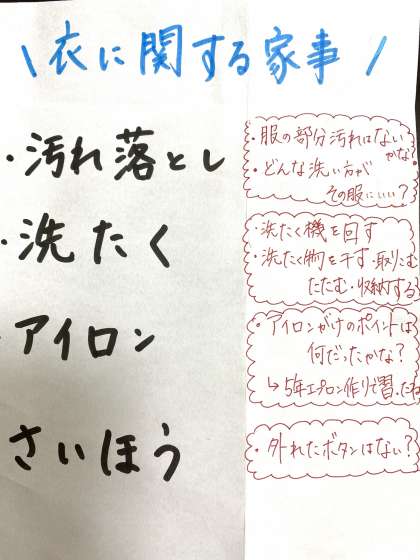 \ 衣に関する家事 /
・汚れ落とし
・服の部分汚れはない
かな?
・どんな洗い方が
その服にいい?
・洗たく
・洗たく機を回す
・洗たく物を干す・取りこむ
たたむ・収納する
・アイロン
・アイロンがけのポイントは
何だったかな?
↳5年エプロン作りで習ったね
さいほう
・外れたボタンはない?